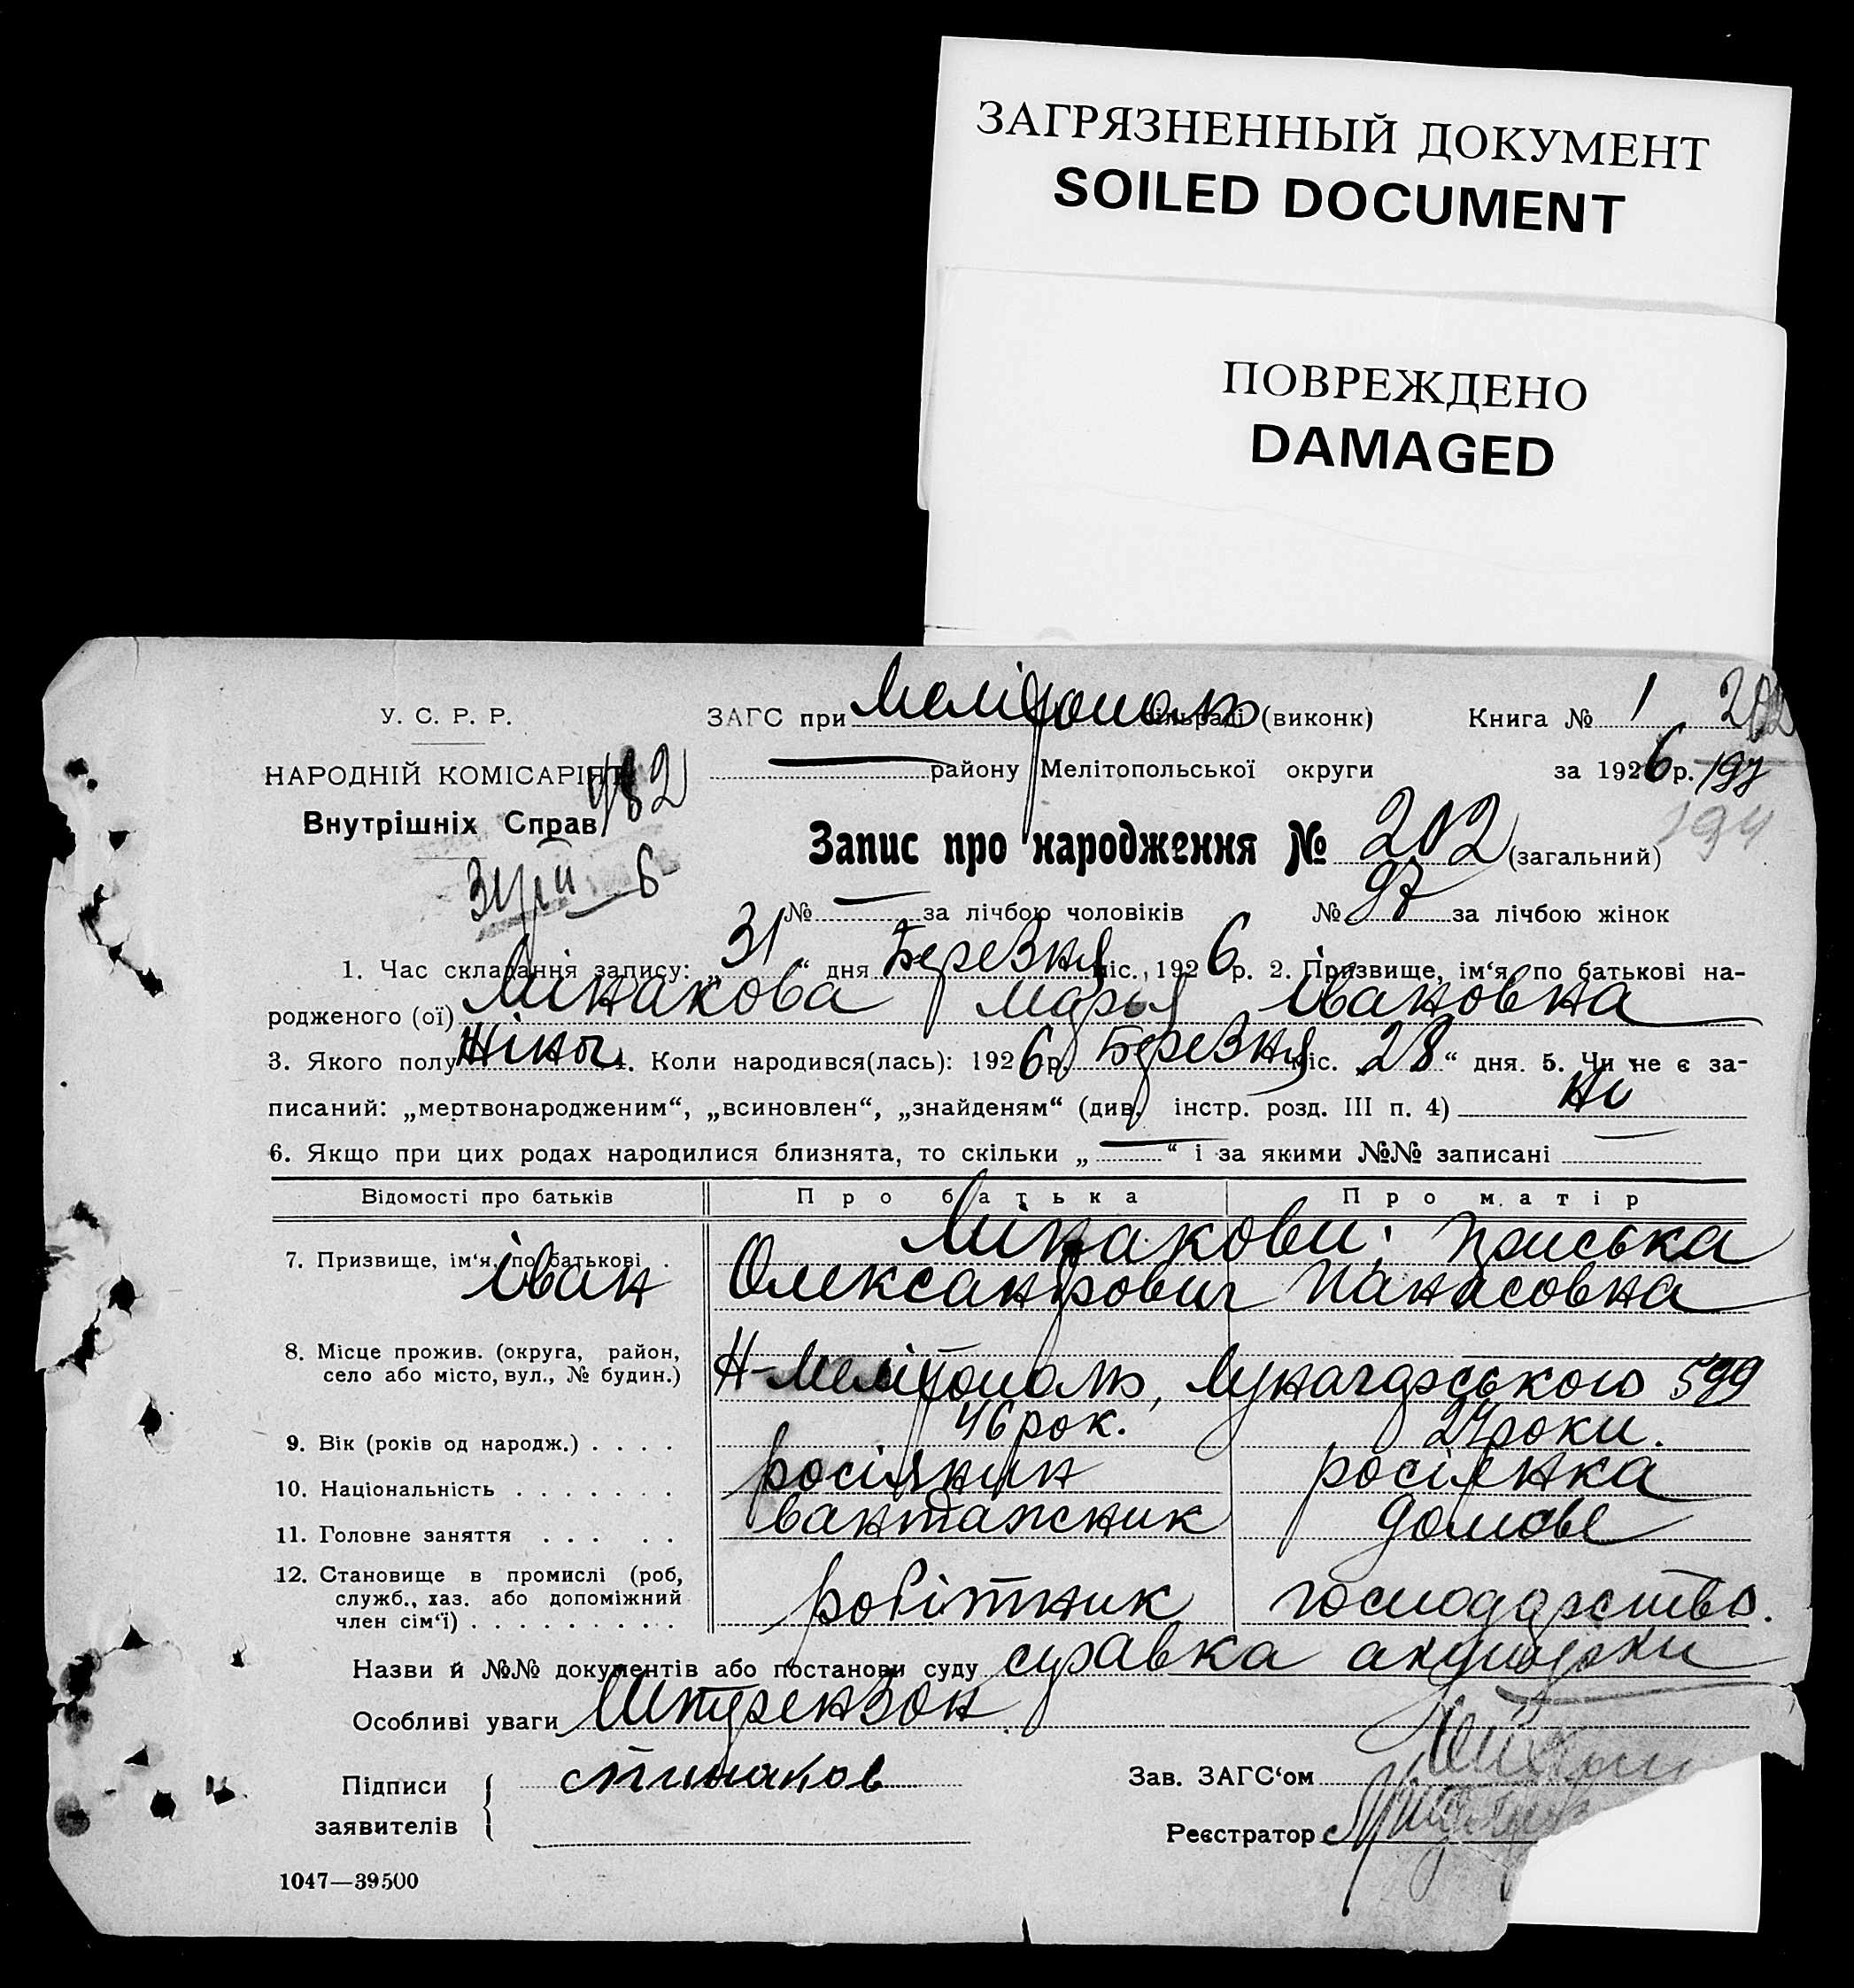 ЗАГРЯЗНЕННЫЙ ДОКУМЕНТ
SOILED DOCUMENT
ПОВРЕЖДЕНО
DAMAGED
У. С. Р. Р.
ЗАГС при Мелітополь (виконк) Книга № 1 202
НАРОДНІЙ КОМІСАРІЯТ 182
района Мелітопольської округи за 1926 р. 197
Внутрішніх Справ
194
Запис про народження № 202 (загальний)
31/III 6
№ — за лічбою чоловіків № 97 за лічбою жінок
1. Час складання запису: „31“ дня Березня міс., 1926 р. 2. Призвище, ім‘я, по батькові на-
родженого (ої) Мінакова Марія Івановна
3. Якого полу Жіноч. 4. Коли народився(лась): 1926 р. Березня міс. 28“ дня. 5. Чи не є за-
писаний: „мертвонародженим“, „всиновлен“, „знайденям“ (див. інстр. розд. III п. 4) Ні
6. Якщо при цих родах народилися близнята, то скільки „—“ і за якими №№ записані —
Відомості про батьків Про батька Про матір
7. Призвище, ім‘я, по батькові . Мінакови: Приська
Іван Олександрович Панасовна
8. Місце прожив. (округа, район,
село або місто, вул., № будин.) Н-Мелітополь, Луначарського 599
9. Вік (років од народж.) . . . . 46 рок. 24 роки.
10. Національність . . . . . . . росіянин росіянка
11. Головне заняття . . . . . вантажник домове
12. Становище в промислі (роб,
служб., хаз. або допоміжний
член сім‘ї) . . . . . . . . . робітник господарство.
Назви й №№ документів або постанови суду справка акушерки
Особливі уваги Штерензон
Підписи
заявителів
Минаков
Зав. ЗАГС‘ом
Реєстратор
1047—39500